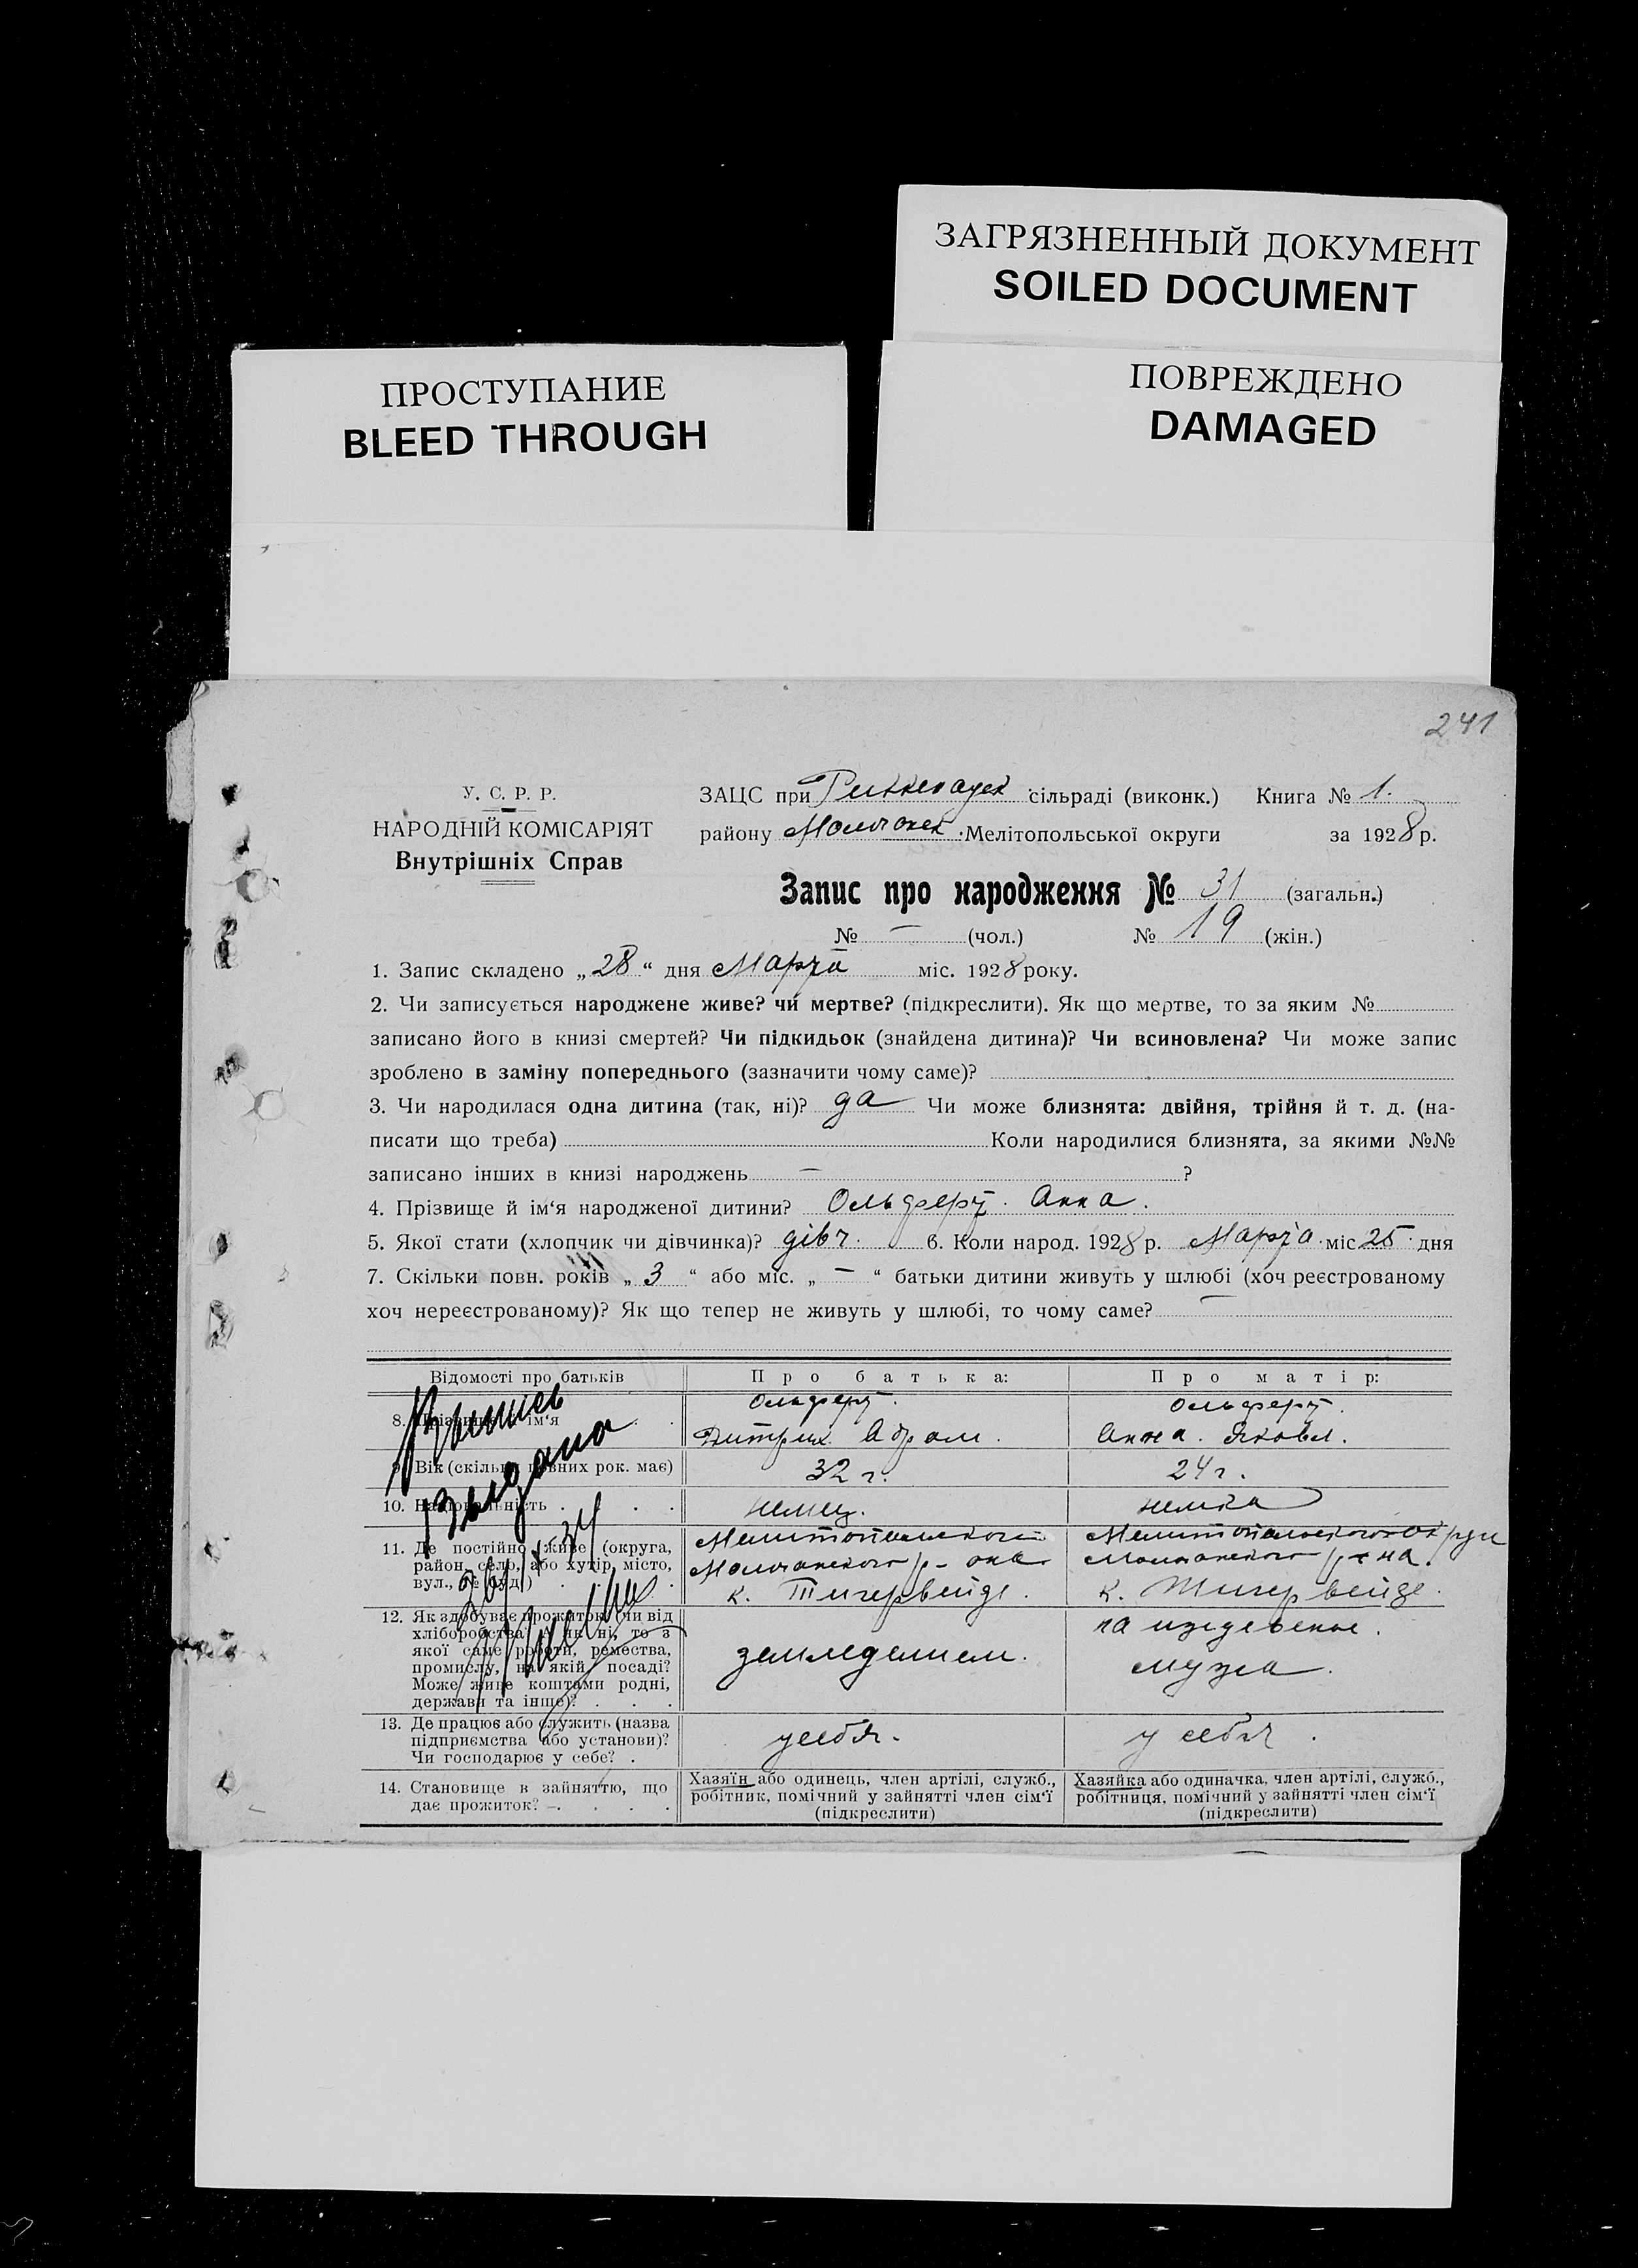 ЗАГРЯЗНЕННЫЙ ДОКУМЕНТ
SOILED DOCUMENT
ПРОСТУПАНИЕ
BLEED THROUGH
ПОВРЕЖДЕНО
DAMAGED
241
У. С. Р. Р.
НАРОДНІЙ КОМІСАРІЯТ
Внутрішніх Справ
ЗАЦС при сільраді (виконк.) Книга № 1.
району Молочанск. Мелітопольської округи за 1928 р.
Запис про народження № 31 (загальн.)
№ — (чол.) № 19 (жін.)
1. Запис складено „28“ дня Марта міс. 1928 року.
2. Чи записується народжене живе? чи мертве? (підкреслити). Як що мертве, то за яким №
записано його в книзі смертей? Чи підкидьок (знайдена дитина)? Чи всиновлена? Чи може запис
зроблено в заміну попереднього (зазначити чому саме)?
3. Чи народилася одна дитина (так, ні)? да Чи може близнята: двійня, трійня й т. д. (на-
писати що треба) Коли народилися близнята, за якими №№
записано інших в книзі народжень — ?
4. Прізвище й ім‘я народженої дитини? Ольферт. Анна.
5. Якої статі (хлопчик чи дівчинка)? дівч. 6. Коли народ. 1928 р. Марта міс 25 дня
7. Скільки повн. років „3“ або міс. „—“ батьки дитини живуть у шлюбі (хоч реєстрованому
хоч нереєстрованому)? Як що тепер не живуть у шлюбі, то чому саме? —
Відомості про батьків Про батька: Про матір:
8. Прізвище й ім‘я
Ольферт.
Дитрих Абрам.
Ольферт.
Анна. Яковл.
9. Вік (скільки повних рок. має) 32 г. 24 г.
10. Національність немец. немка
11. Де постійно живе (округа,
район, село, або хутір, місто,
вул., № буд.)
Мелитопольского
Молочанского р-она
к. Тигервейде.
Мелитопольского округи
Молочанского р-на.
к. Тигервейде.
Выпись
выдана
12. Як здобуває прожиток (чи від
хліборобства? А як ні, то з
якої саме роботи, ремества,
промислу, на якій посаді?
Може живе коштами родні,
держави та інше)?
земледелием.
на иждевение.
мужа.
13. Де працює або служить (назва
підприємства або установи)?
Чи господарює у себе?
у себя.
у себя.
14. Становище в зайняттю, що
дає прожиток?
Хазяїн або одинець, член артілі, служб.,
робітник, помічний у зайнятті член сім‘ї
(підкреслити)
Хазяйка або одиначка, член артілі, служб.,
робітниця, помічний у зайнятті член сім‘ї
(підкреслити)